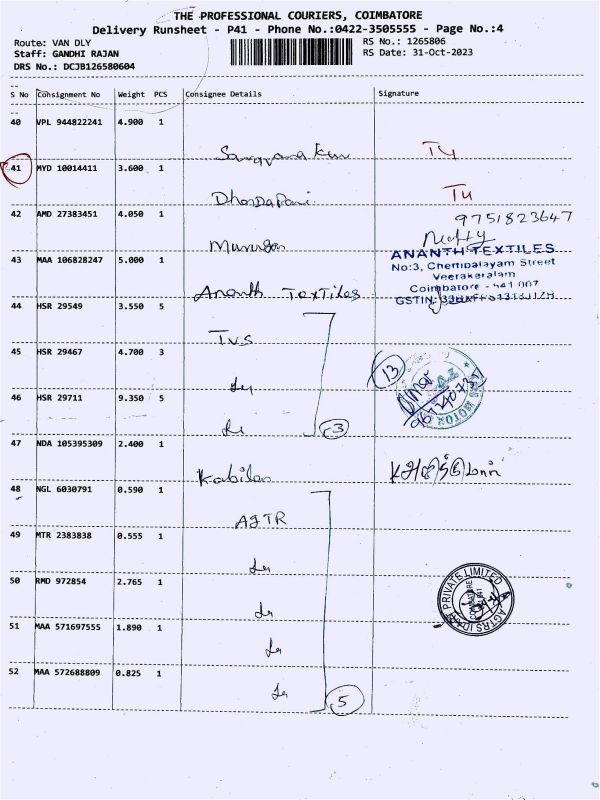 THE PROFESSIONAL COURIERS, COIMBATORE
Delivery Runsheet - P41 - Phone No.:0422-3505555 - Page No.:4
Route: VAN DLY RS No.: 1265806
Staff: GANDHI RAJAN RS Date: 31-Oct-2023
DRS No.: DCJB126580604
S No Consignment No Weight PCS Consignee Details Signature
40 VPL 944822241 4.900 1
Saravana Kum TU
41 MYD 10014411 3.600 1
Dhandapani TU
42 AMD 27383451 4.050 1 9751823647
Murugan
43 MAA 106828247 5.000 1 ANANTH TEXTILES
No:3, Cheripalayam Street
Veerakeralam
Ananth Textiles Coimbatore - 641 007
GSTIN:
44 HSR 29549 3.550 5
TVS
45 HSR 29467 4.700 3 13
46 HSR 29711 9.350 5 MOTOR
3
47 NDA 105395309 2.400 1
Kabilan
48 NGL 6030791 0.590 1
AGTR
49 MTR 2383838 0.555 1
50 RMD 972854 2.765 1 PRIVATE LIMITED
COIMBATORE
51 MAA 571697555 1.890 1
52 MAA 572688809 0.825 1
5